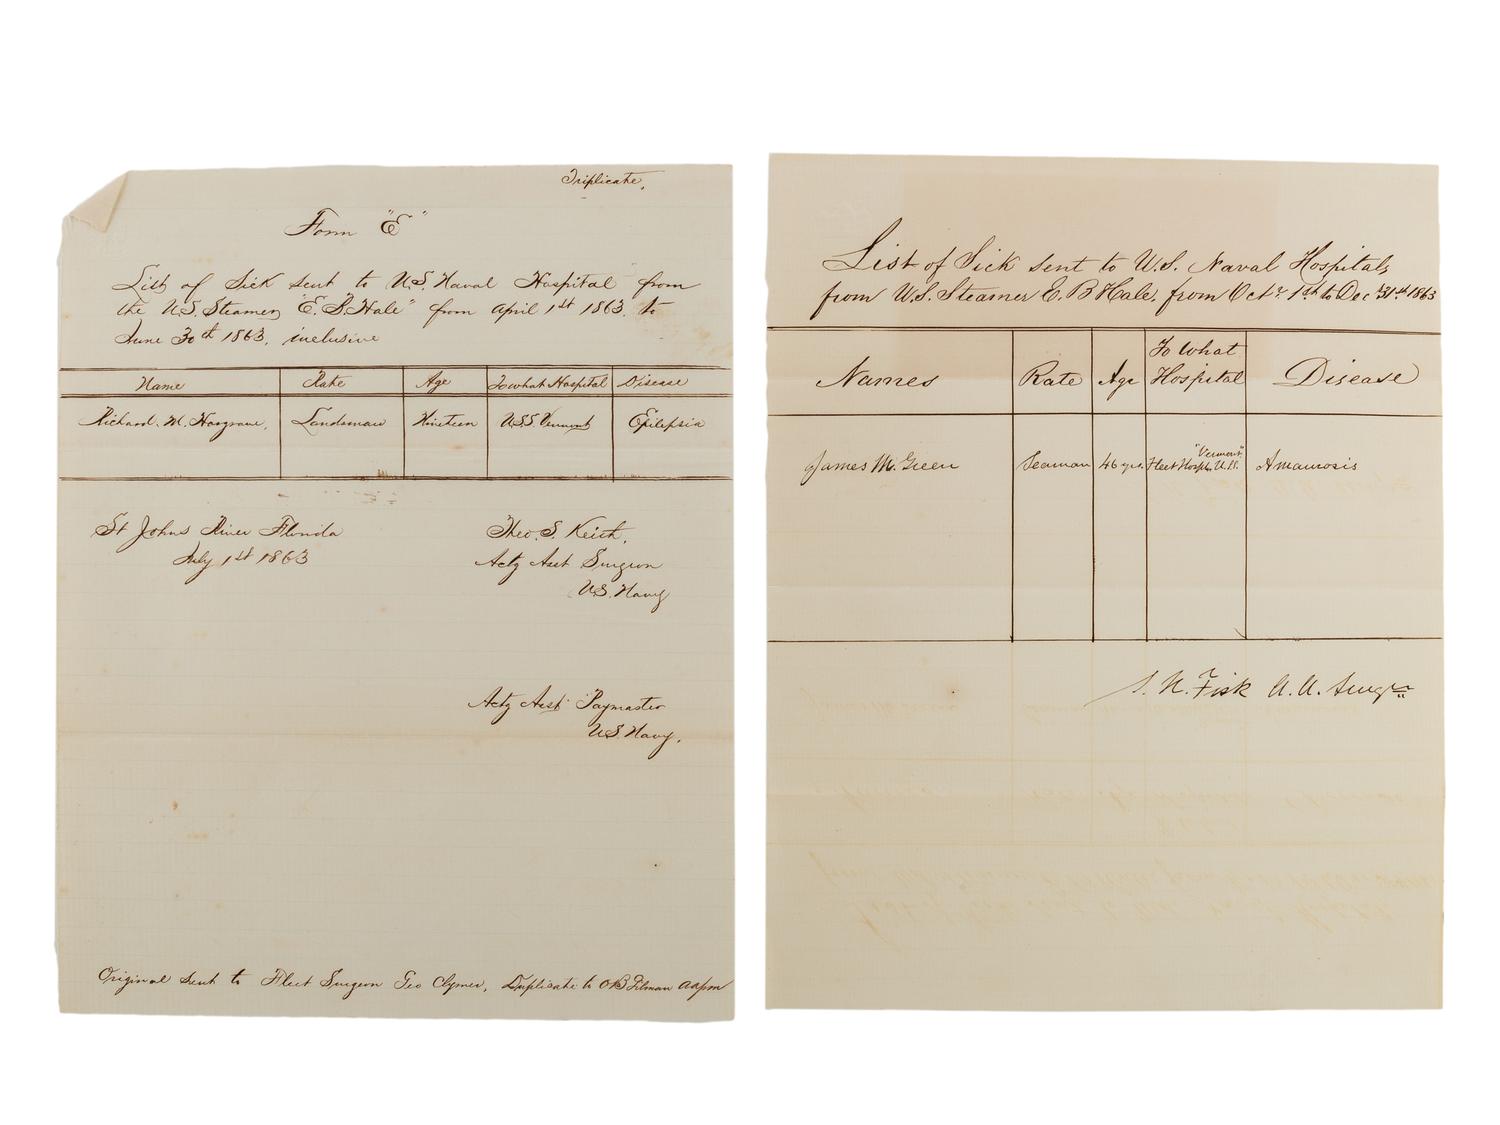 Triplicate,
Form "E"
List of Sick sent to U.S. Naval Hospital from
the U.S. Steamer "E. B. Hale" from April 1st 1863. to
June 30th 1863, inclusive
Name Rate Age To what Hospital Disease
Richard. M. Hargrave, Landsman Nineteen U.S.S. Vermont Epilepsia
St Johns River Florida
July 1st 1863
Theo. S. Keith,
Actg Asst Surgeon
U.S. Navy
Actg Asst Paymaster
U.S. Navy.
Original sent to Fleet Surgeon Geo Clymer, Duplicate to
List of Sick sent to U.S. Naval Hospitals
from U.S. Steamer E. B Hale, from Octr. 1st to Dec 31st 1863
Names Rate Age To what Hospital Disease
James M. Green Seaman 46 yrs. Fleet Hospl. "Vermont" U.S. Amaurosis
S. N. Fisk A. A. Surgn